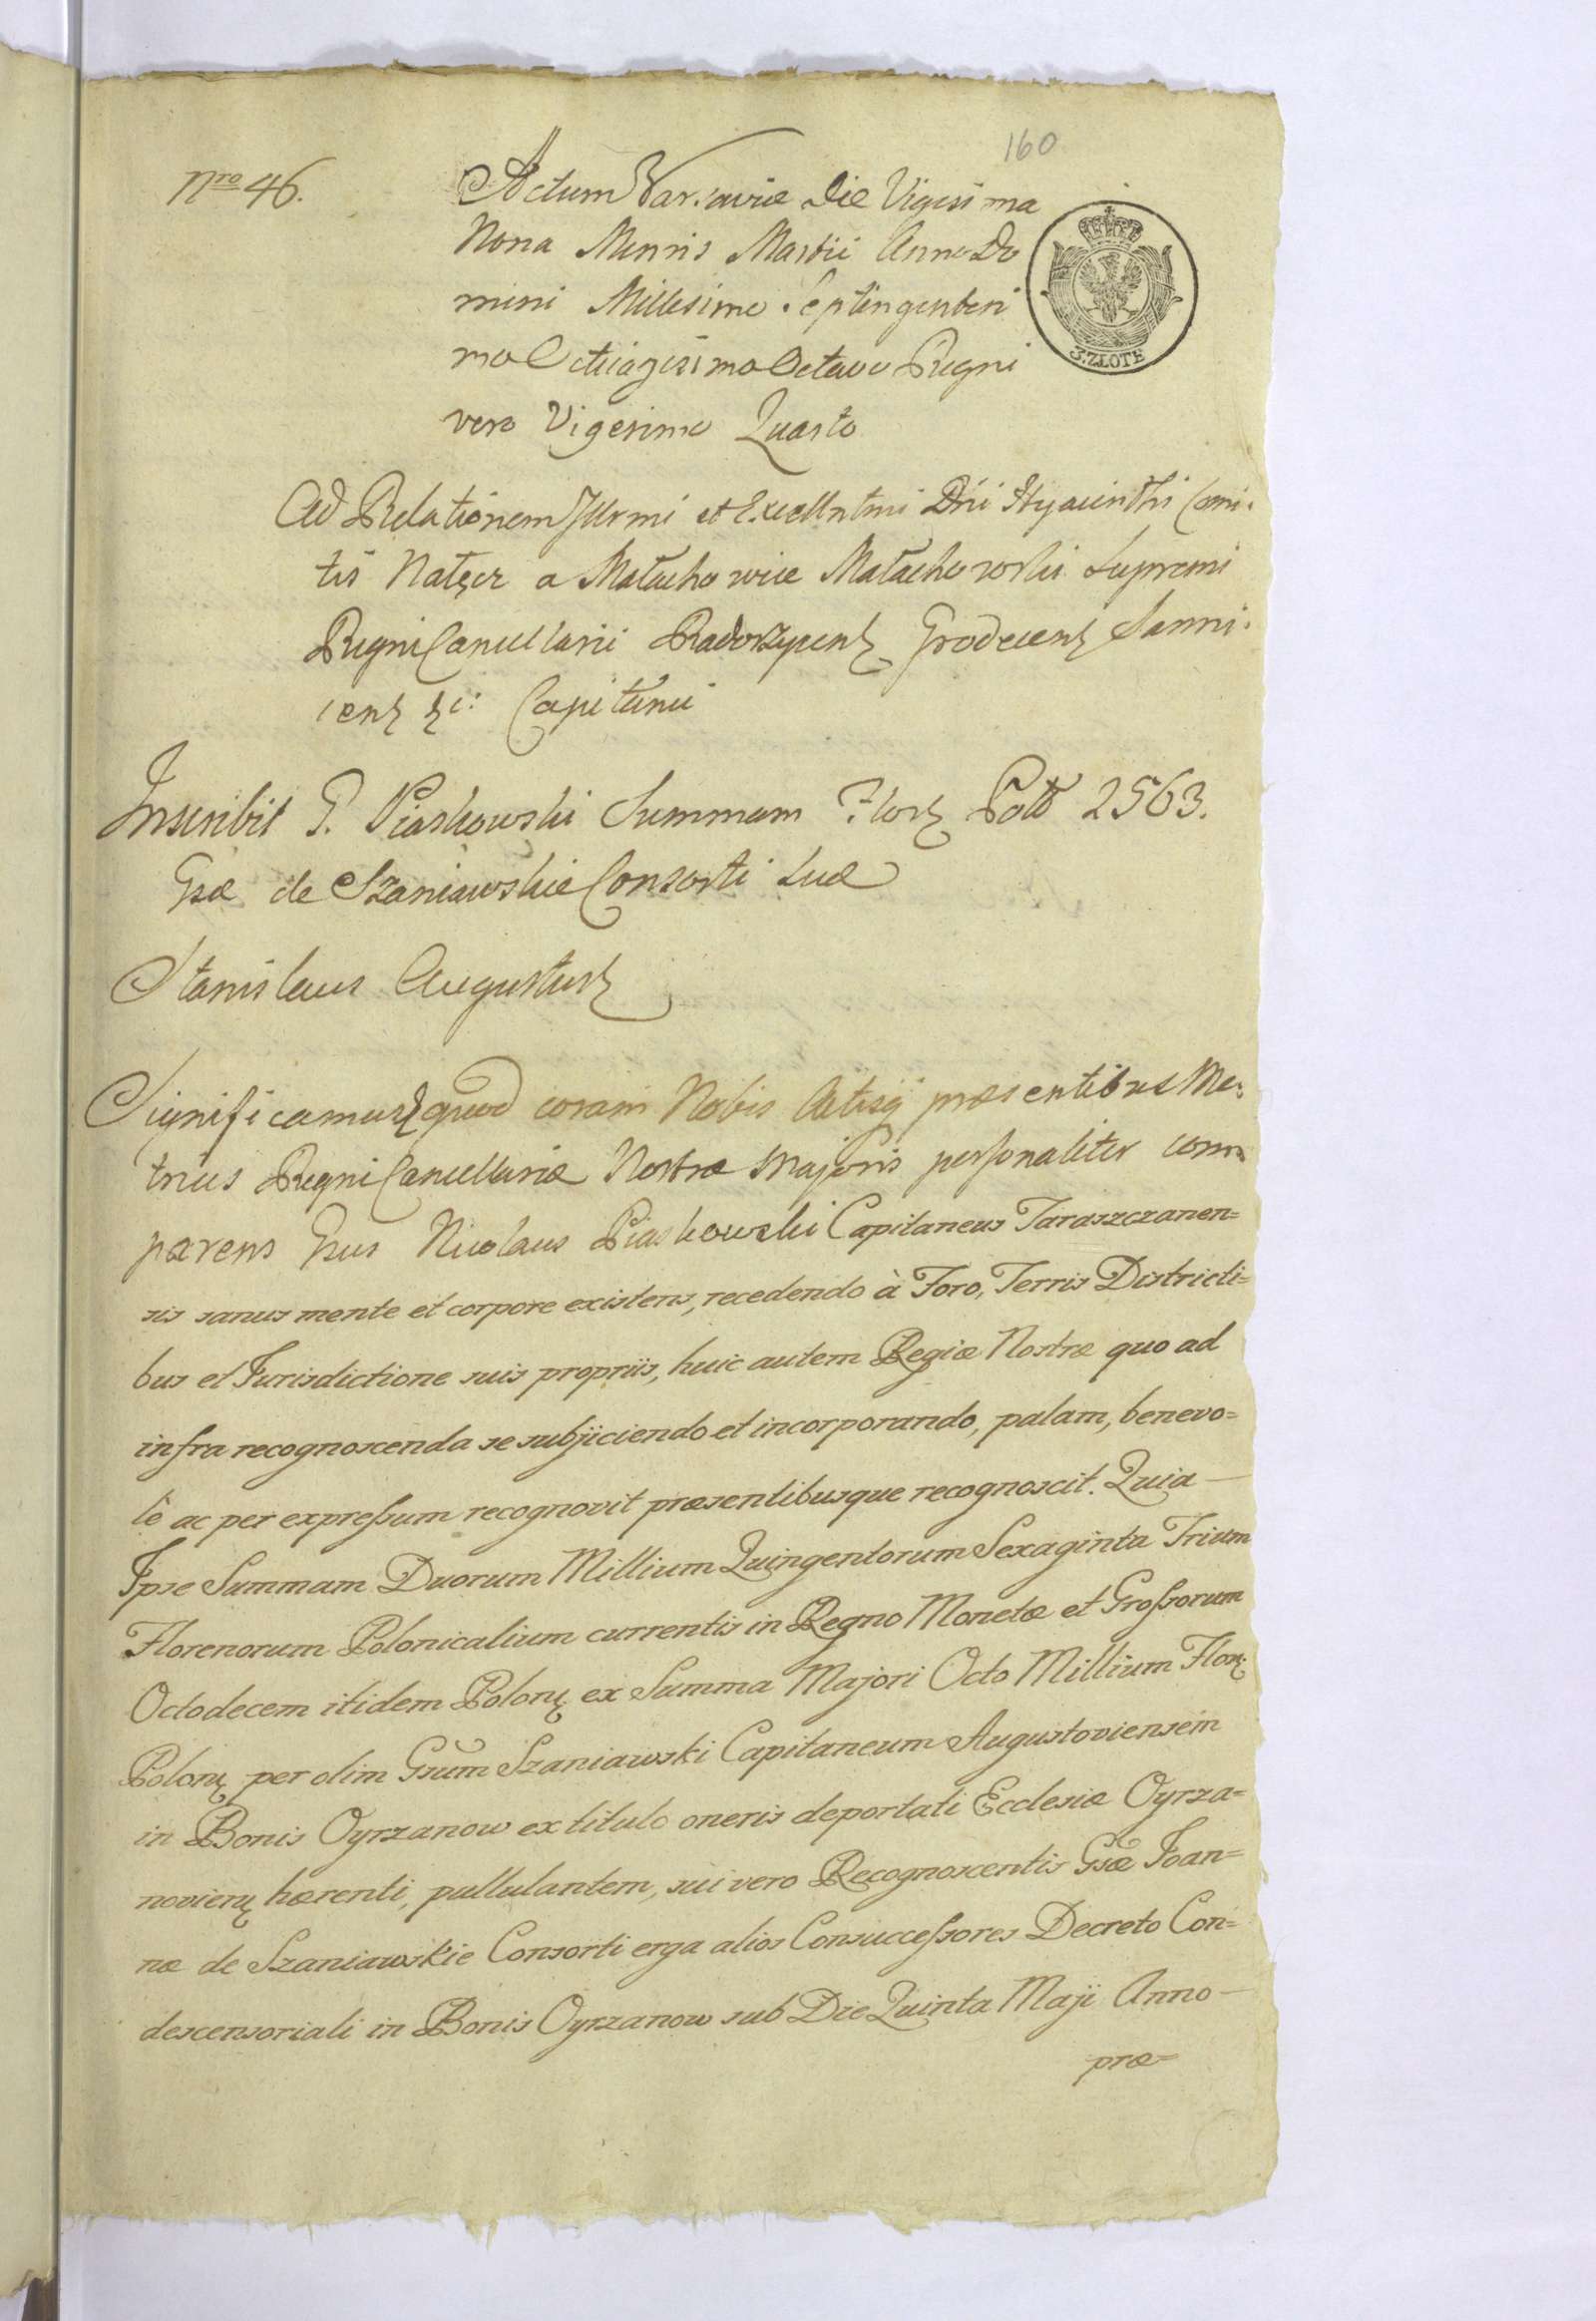 160
Nro 46.
Actum Varsaviæ Die Vigesima
Nona Mensis Martii Anno Do
mini Millesimo Septingentesi
mo Octuagesimo Octavo Regni
vero Vigesimo Quarto
3. ZŁOTE
Ad Relationem Illrmi et Excellntmi Dni Hyacinthi Comi:
tis Nałęcz a Małachowice Małachowski Supremi
Regni Cancellarii Radoszycen Grodecen Sanni:
cen &c: Capitanei
Inscribit G. Piaskowski Summam Flor Poll 2563.
Gsæ de Szaniawskie Consorti Suæ
Stanislaus Augustus
Significamus quod coram Nobis Actisq præsentibus Me:
trices Regni Cancellariæ Nostræ Majoris personaliter com
parens Gsus Nicolaus Piaskowski Capitaneus Taraszczanen=
sis sanus mente et corpore existens, recedendo à Foro, Terris Districti=
bus et Jurisdictione suis propriis, huic autem Regiæ Nostræ quo ad
infra recognoscenda se subjiciendo et incorporando, palam, benevo=
lè ac per expressum recognovit præsentibusque recognoscit. Quia —
Ipse Summam Duorum Millium Quingentorum Sexaginta Trium
Florenorum Polonicalium currentis in Regno Monetæ et Grossorum
Octodecem itidem Polon ex Summa Majori Octo Millium Flor
Polon per olim Gsum Szaniawski Capitaneum Augustoviensem
in Bonis Oyrzanow ex titulo oneris deportati Ecclesiæ Oyrza=
novien hærenti, pullulantem, sui vero Recognoscentis Gsæ Joan=
næ de Szaniawskie Consorti erga alios Consuccessores Decreto Con=
descensoriali in Bonis Oyrzanow sub Die Quinta Maji Anno —
præ=